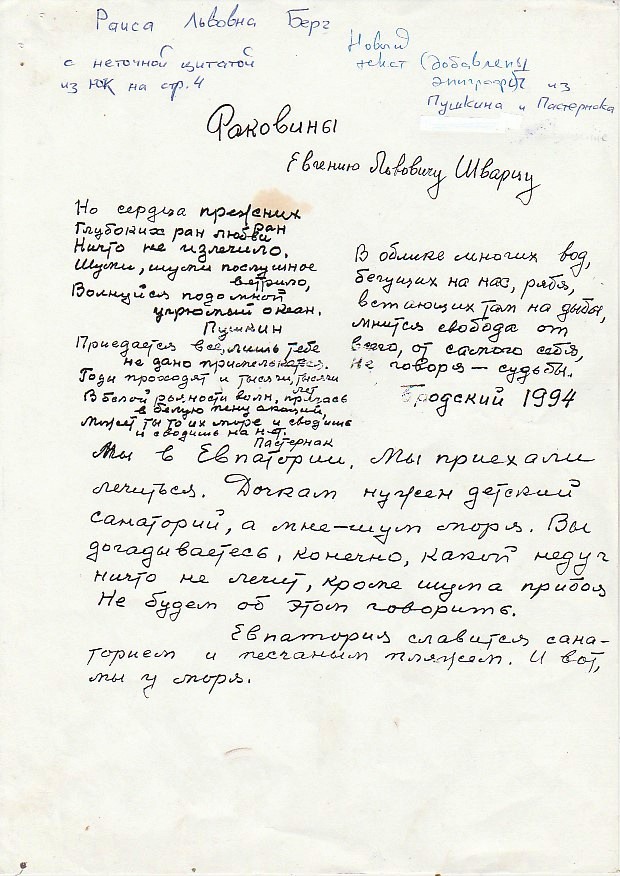 Раиса Львовна Берг
с неточной цитатой
из ЮК на стр. 4
Новый
текст (добавлены
эпиграфы из
Пушкина и Пастернака
Раковины
Евгению Львовичу Шварцу
Но сердца прежних ран
Глубоких ран любви
Ничто не излечило.
Шуми, шуми послушное
ветрило,
Волнуйся подо мной
угрюмый океан.
Пушкин
Приедается все, лишь тебе
не дано примелькаться.
Годы проходят и тысячи, тысячи
лет
В белой рьяности волн, прячась
в белую пену акаций,
Может ты то их море и сводишь
и сводишь на нет.
Пастернак
В облике многих вод,
бегущих на нас, рябя,
встающих там на дыбы,
мнится свобода от
всего, от самого себя,
не говоря — судьбы.
Бродский 1994
Мы в Евпатории. Мы приехали
лечиться. Дочкам нужен детский
санаторий, а мне — шум моря. Вы
догадываетесь, конечно, какой недуг
ничто не лечит, кроме шума прибоя
Не будем об этом говорить.
Евпатория славится сана-
торием и песчаным пляжем. И вот,
мы у моря.